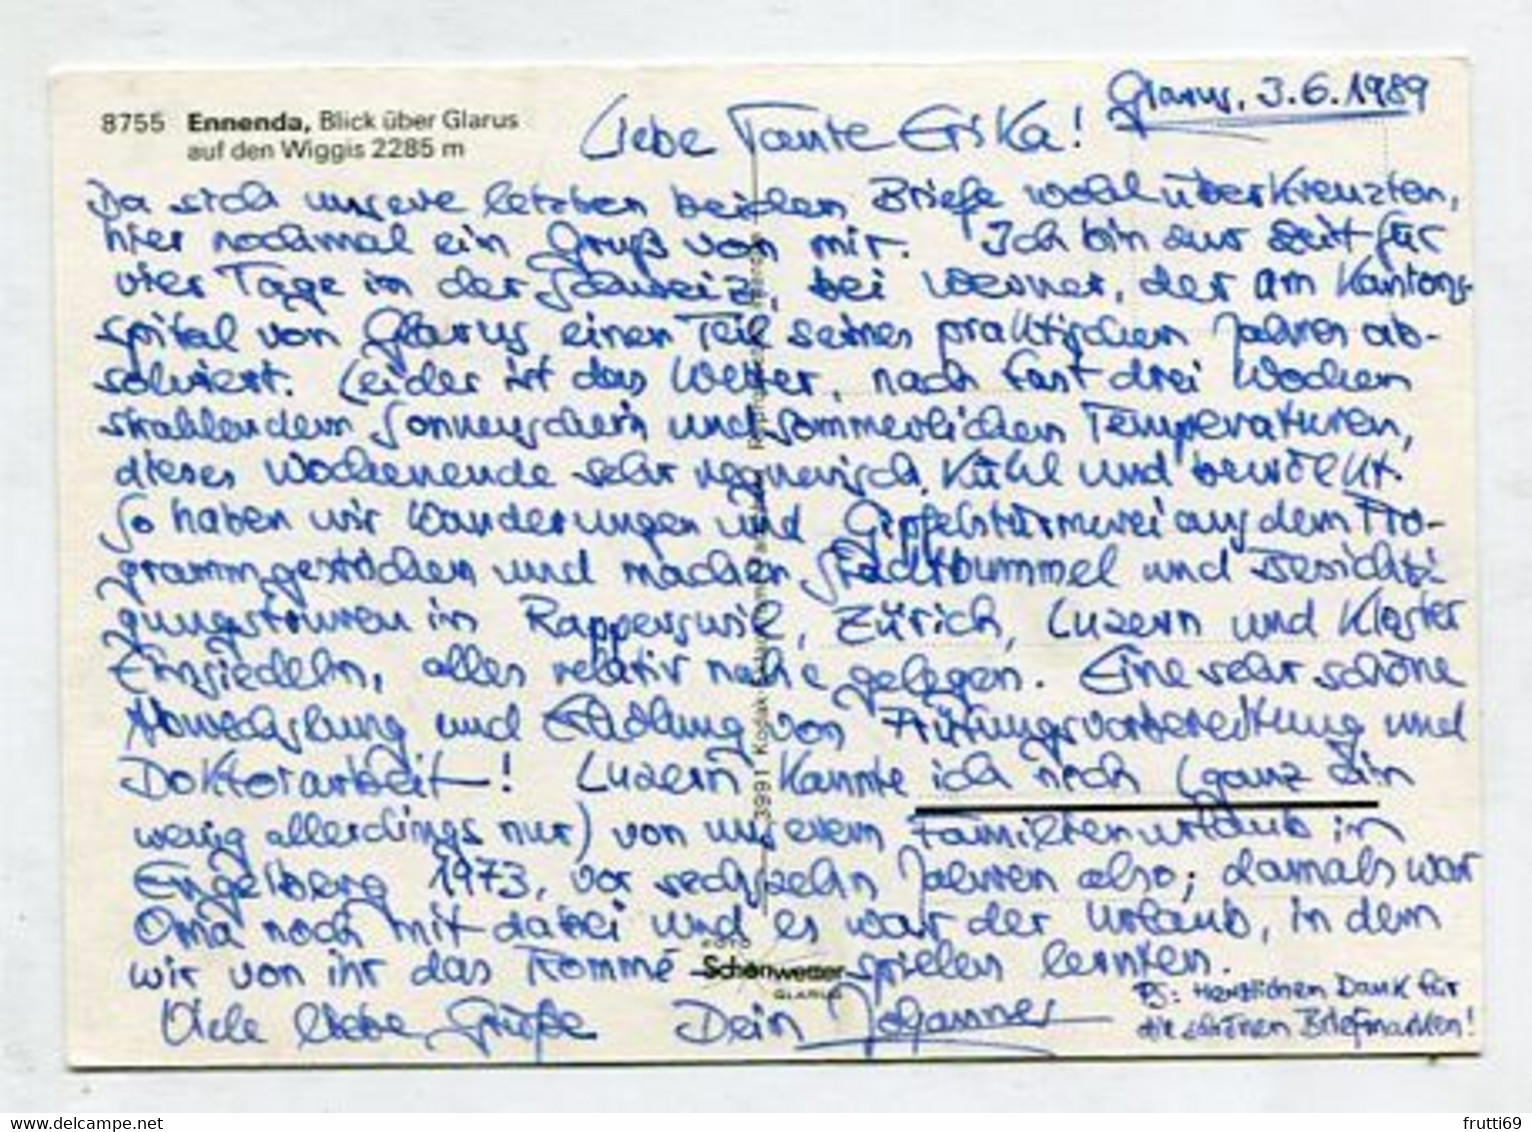 Glarus, 3.6.1989
8755 Ennenda, Blick über Glarus
auf den Wiggis 2285 m
Liebe Tante Erika!
Da sich unsere letzten beiden Briefe wohl überkreuzten,
hier nochmal ein Gruß von mir. Ich bin zur Zeit für
vier Tage in der Schweiz, bei Werner, der am Kantons-
spital von Glarus einen Teil seines praktischen Jahres ab-
solviert. Leider ist das Wetter, nach fast drei Wochen
strahlendem Sonnenschein und sommerlichen Temperaturen,
dieses Wochenende sehr regnerisch, kühl und bewölkt.
So haben wir Wanderungen und Gipfelstürmerei aus dem Pro-
gramm gestrichen und machen Stadtbummel und Besichti-
gungstouren in Rapperswil, Zürich, Luzern und Kloster
Einsiedeln, alles relativ nahe gelegen. Eine sehr schöne
Abwechslung und Erholung von Prüfungsvorbereitung und
Doktorarbeit! Luzern kannte ich noch (ganz ein
wenig allerdings nur) von unserem Familienurlaub in
Engelberg 1973, vor sechzehn Jahren also; damals war
Oma noch mit dabei und es war der Urlaub, in dem
wir von ihr das Rommé-spielen lernten.
Viele liebe Grüße Dein Johannes
PS: Herzlichen Dank für
die schönen Briefmarken!
3991 Kodak
FOTO
Schönwetter
GLARUS
www.delcampe.net
frutti69